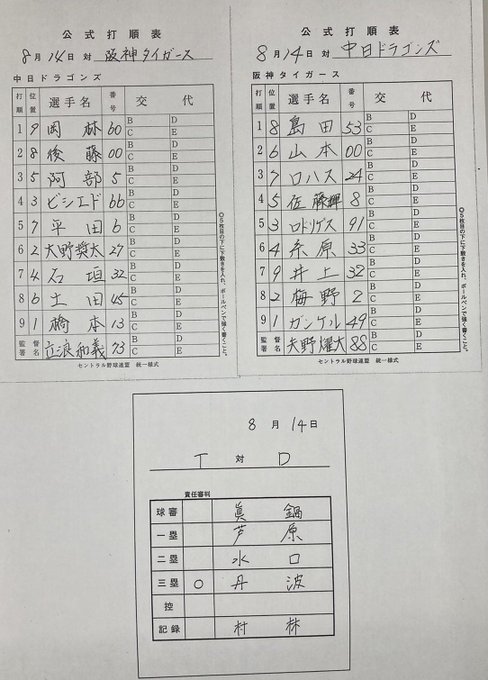 公式打順表
8月14日 対 阪神タイガース
中日ドラゴンズ
打順 位置 選手名 番号 交代
1 9 岡林 60 B D C E
2 8 後藤 00 B D C E
3 5 阿部 5 B D C E
4 3 ビシエド 66 B D C E
5 7 平田 6 B D C E
6 2 大野奨太 27 B D C E
7 4 石垣 32 B D C E
8 6 土田 45 B D C E
9 1 橋本 13 B D C E
監督署名 立浪和義 73 B D C E
◎5枚目の下に下敷きを入れ、ボールペンで強く書くこと。
セントラル野球連盟 統一様式
公式打順表
8月14日 対 中日ドラゴンズ
阪神タイガース
打順 位置 選手名 番号 交代
1 8 島田 53 B D C E
2 6 山本 00 B D C E
3 7 ロハス 24 B D C E
4 5 佐藤輝 8 B D C E
5 3 ロドリゲス 91 B D C E
6 4 糸原 33 B D C E
7 9 井上 32 B D C E
8 2 梅野 2 B D C E
9 1 ガンケル 49 B D C E
監督署名 矢野燿大 88 B D C E
◎5枚目の下に下敷きを入れ、ボールペンで強く書くこと。
セントラル野球連盟 統一様式
8月14日
T 対 D
責任審判
球審 眞鍋
一塁 芦原
二塁 水口
三塁 ○ 丹波
控
記録 村林